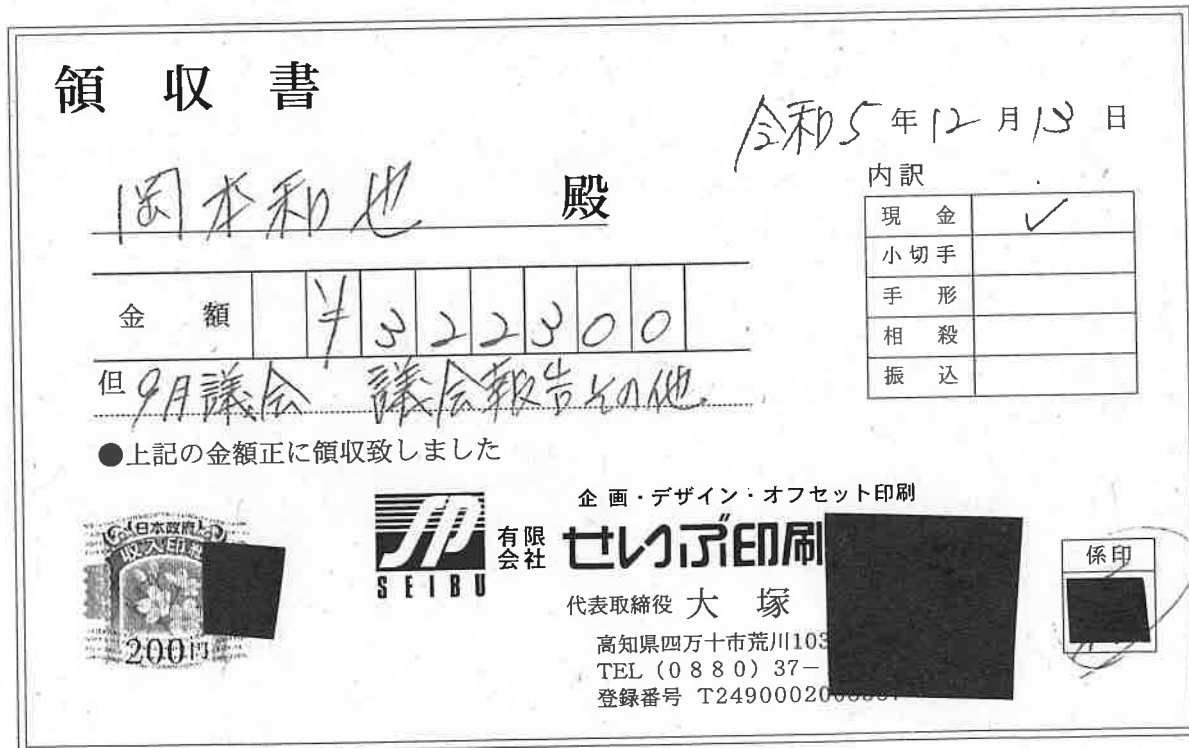 領収書
令和5年12月13日
岡本和也 殿
内訳
現金 ✓
小切手
手形
相殺
振込
金額 ¥322300
但 9月議会 議会報告その他
●上記の金額正に領収致しました
日本政府
収入印紙
200円
SEIBU
企画・デザイン・オフセット印刷
有限会社 せいぶ印刷
代表取締役 大塚
高知県四万十市荒川103
TEL (0880) 37-
登録番号 T24900020
係印